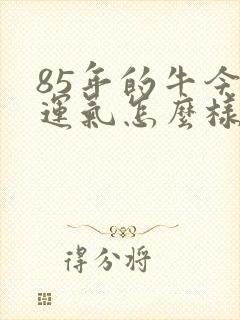 85年的牛今
運氣怎麼樣
得分將